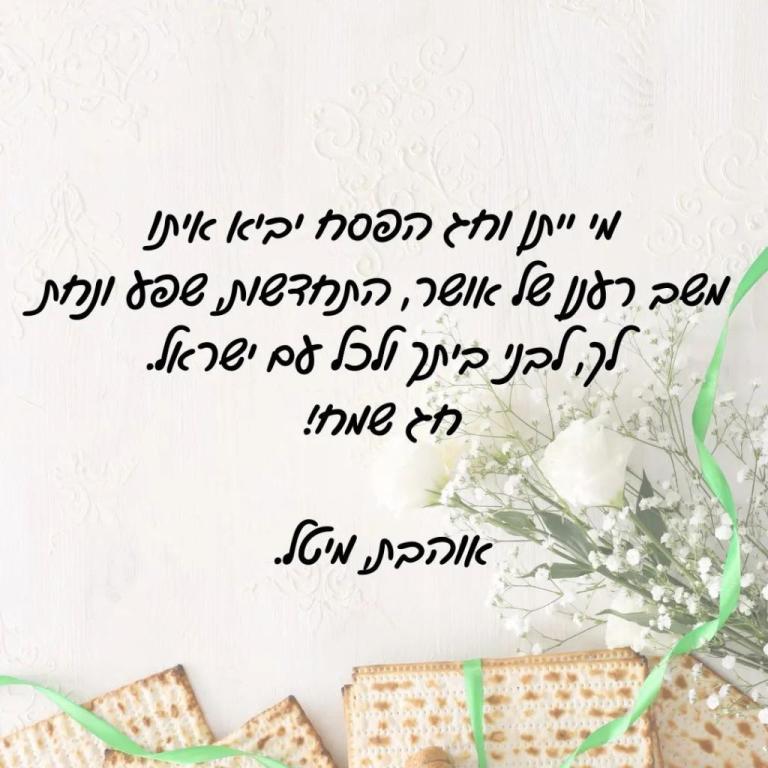 מי ייתן וחג הפסח יביא איתו
משב רענן של אושר, התחדשות, שפע ונחת
לך, לבני ביתך ולכל עם ישראל.
חג שמח!
אוהבת, מיטל.